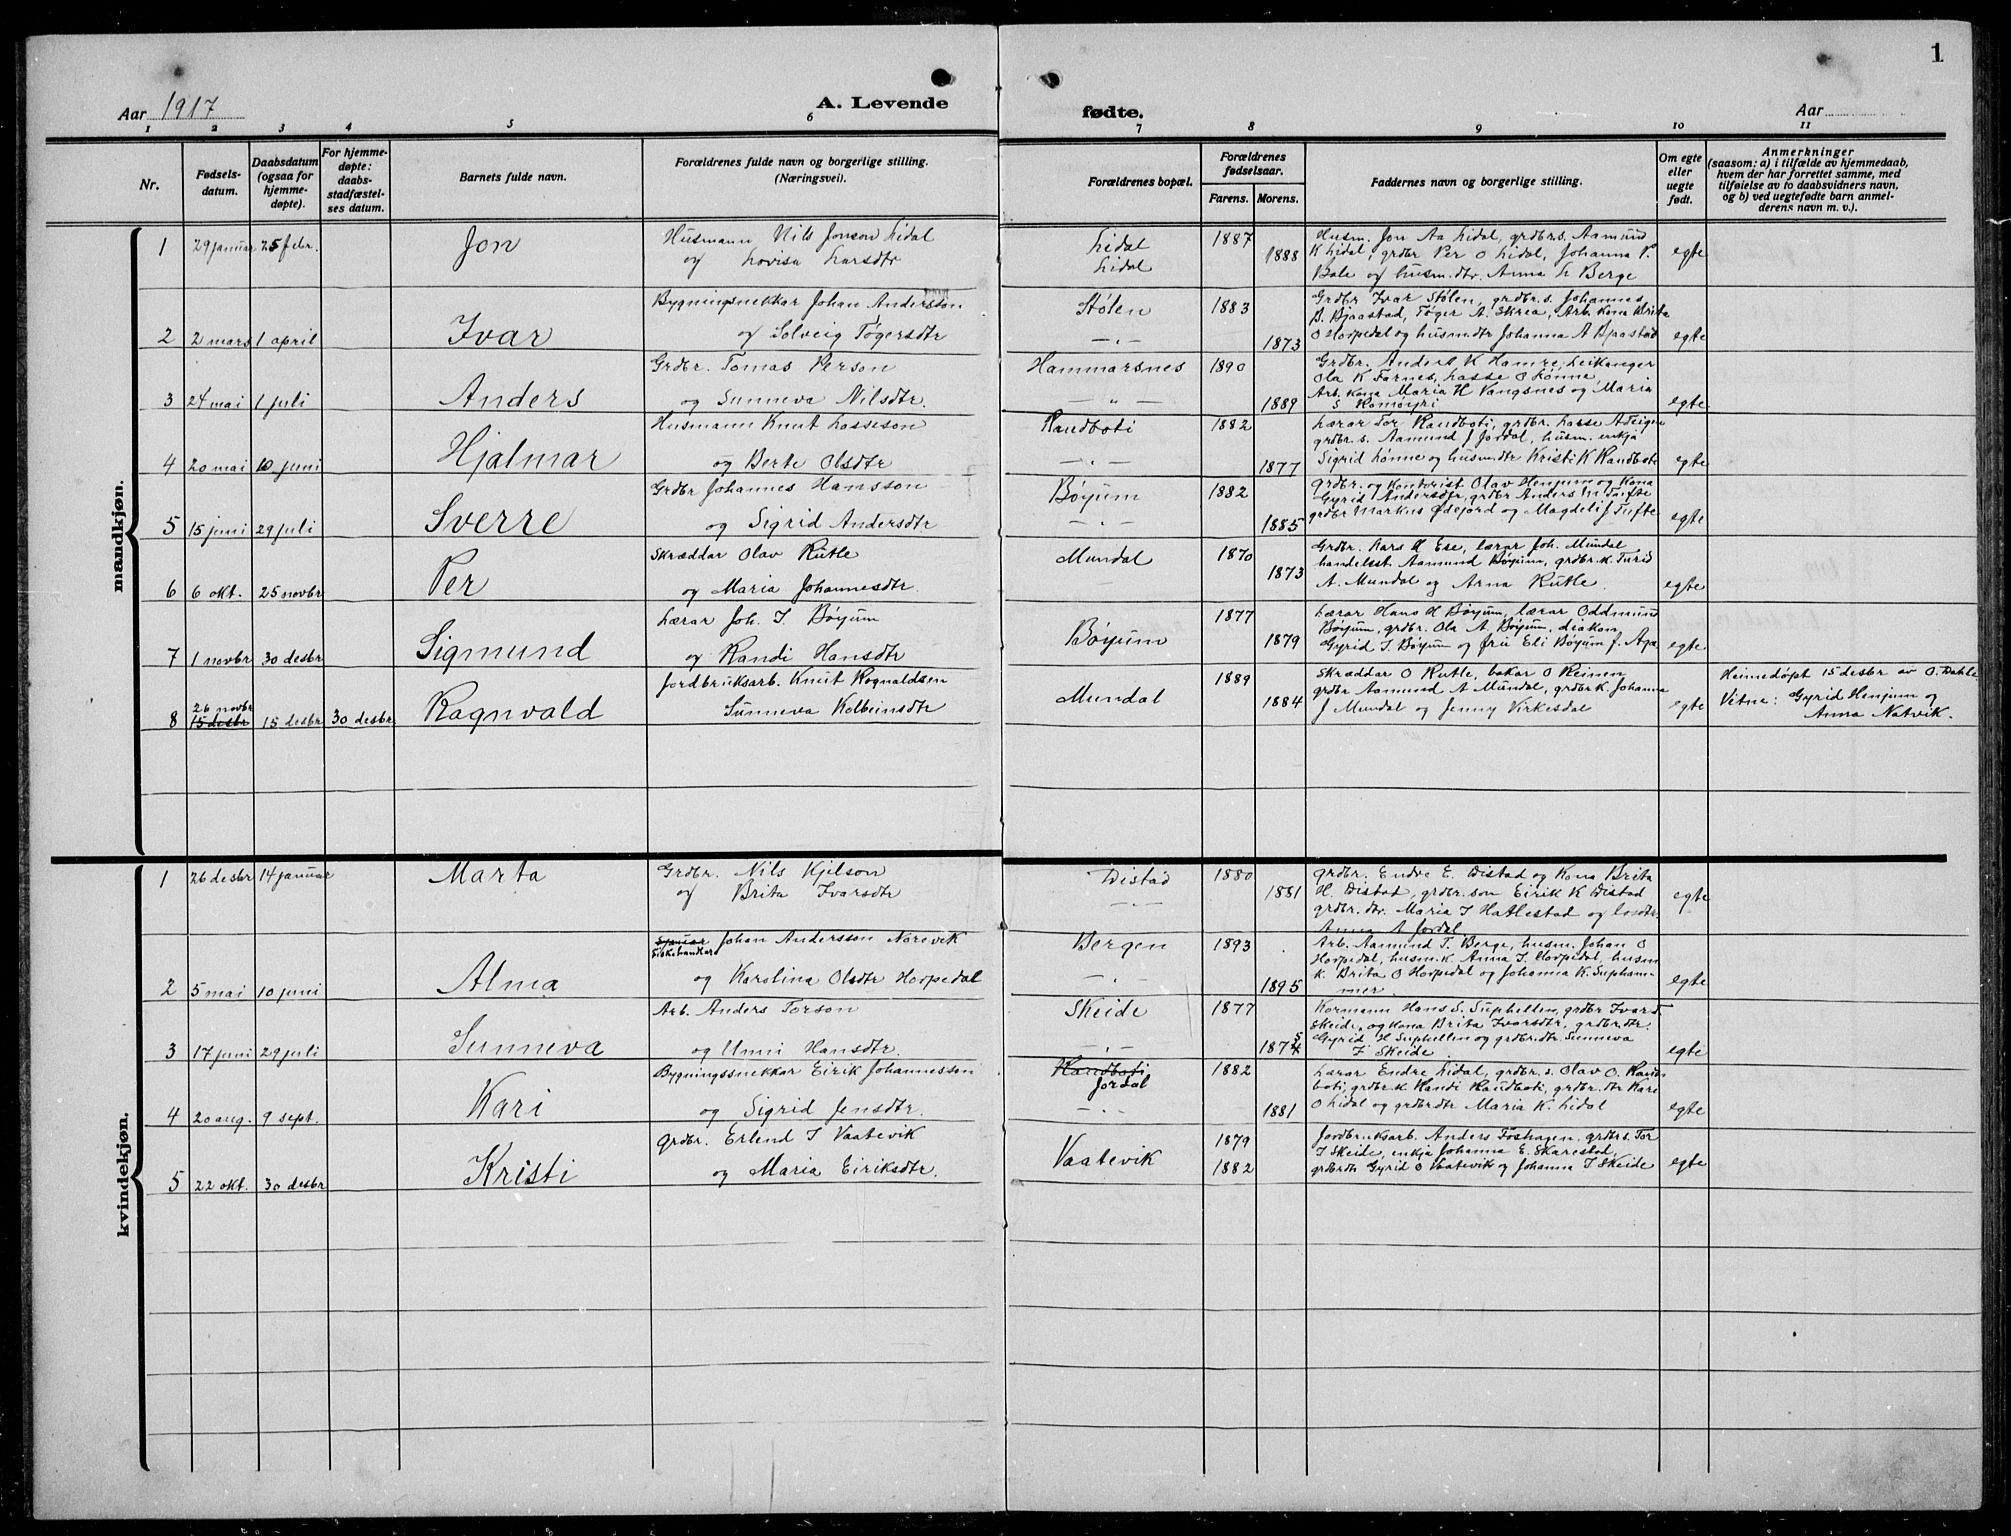 1
Aar 1917
A. Levende
fødte.
Aar
1 2 3 4 5 6 7 8 9 10 11
Nr.
Fødsels-
datum.
Daabsdatum
(ogsaa for
hjemme-
døpte).
For hjemme-
døpte:
daabs-
stadfæstel-
ses datum.
Barnets fulde navn.
Forældrenes fulde navn og borgerlige stilling.
(Næringsvei).
Forældrenes bopæl.
Forældrenes
fødselsaar.
Farens. Morens.
Faddernes navn og borgerlige stilling.
Om egte
eller
uegte
født.
Anmerkninger
(saasom: a) i tilfælde av hjemmedaab,
hvem der har forrettet samme, med
tilføielse av to daabsvidners navn,
og b) ved uegtefødte barn anmel-
derens navn m. v.).
mandkjøn.
1 29 januar 25 febr. Jon
Husmann Nils Jonson Lidal
og Lovisa Larsdtr
Lidal
Lidal
1887
1888
Husm. Jon Aa Lidal, grdbr.s. Aamund
K Lidal, grdbr Per O Lidal, Johanna P.
Bale og husm.dtr. Anna L Berge
egte
2 2 mars 1 april Ivar
Bygningsnekkar Johan Anderson
og Solveig Tøgersdtr
Stølen
-"-
1883
1873
Grdbr Ivar Stølen, grdbr.s. Johannes
B. Bjaastad, Tøger A. Skrea, Arb. kona Brita
O Horpedal og husm.dtr Johanna A Bjaastad
egte
3 24 mai 1 juli Anders
Grdbr. Tomas Person
og Sunneva Nilsdtr.
Hammarsnes
-"-
1890
1889
Grdbr. Anders K Hamre, Leikanger
Ola K Farnes, Lasse O Lønne
Arb. kona Maria H Vangsnes og Maria
S Romøyri
egte
4 20 mai 10 juni Hjalmar
Husmann Knut Lasseson
og Berte Olsdtr
Randboti
-"-
1882
1877
Lærar Tor Randboti, grdbr. Lasse A Teigen
grdbr. s. Aamund J Jordal, husm. enkja
Sigrid Lønne og husm.dtr Kristi K Randboti
egte
5 15 juni 29 juli Sverre
Grdbr Johannes Hansson
og Sigrid Andersdtr.
Bøyum
-"-
1882
1885
grdbr. og kontorist Olav Henjum og kona
Gyrid Andersdtr, grdbr Anders M Tufte
grdbr Markus Ødejord og Magdeli J Tufte
egte
6 6 okt. 25 novbr Per
Skræddar Olav Rutle
og Maria Johannesdtr.
Mundal
1870
1873
Grdbr. Lars H Ese, lærar Joh. Mundal
handelsst Aamund Bøyum, grdbr.k. Turid
A. Mundal og Arna Rutle.
egte
7 1 novbr 30 desbr Sigmund
Lærar Joh. I. Bøyum
og Randi Hansdtr
Bøyum
1877
1879
Lærar Hans H Bøyum, lærar Oddmund
Bøyum, grdbr. Ola A. Bøyum, diakon
Gyrid I. Bøyum og fru Eli Bøyum f. Aga
egte
26 novbr
8 15 desbr 15 desbr 30 desbr Ragnvald
Jordbruksarb. Knut Rognaldsen
Sunneva Kolbeinsdtr
Mundal
1889
1884
Skræddar O Rutle, bakar O Reinen
grdbr Aamund A Mundal, grdbr.k. Johanna
J Mundal og Jenny Virkesdal
egte
Heimedøpt 15 desbr av O. Dahle
Vitne: Gyrid Henjum og
Anna Natvik.
kvindekjøn.
1 26 desbr 14 januar Marta
Grdbr. Nils Kjelson
og Brita Ivarsdtr
Distad
-"-
1880
1881
grdbr. Endre E. Distad og kona Brita
H. Distad, grdbr. son Eirik K Distad
grdbr. dtr. Maria I Hatlestad og
Anna A Jordal.
egte
2 5 mai 10 juni Alma
Johan Andersson Norevik
Fiskehandlar
og Karolina Olsdtr Horpedal
Bergen
"
1893
1895
Arb. Aamund T. Berge, husm. Johan O
Horpedal, husm.k. Anna I. Horpedal, husm
k. Brita O Horpedal og Johanna K. Supham-
mer
egte
3 17 juni 29 juli Sunneva
Arb. Anders Torson
og Unni Hansdtr.
Skeide
-"-
1877
1874 5
Kormann Hans S. Suphellen, grdbr Ivar S.
Skeide, og kona Brita Ivarsdtr, grdbr.dtr.
Gyrid H Suphellen og grdbr.dtr Sunneva
I Skeide.
egte
4 20 aug. 9 sept. Kari
Bygningssnekkar Eirik Johannessen
og Sigrid Jensdtr.
Randboti
Jordal
-"-
1882
1881
Lærar Endre Lidal, grdbr. s. Olav O. Rand-
boti, grdbr.k. Randi Randboti, grdbr. dtr Kari
O Lidal og grdbr.dtr Maria K. Lidal
egte
5 22 okt. 30 desbr Kristi
Grdbr. Erlend I Vaatevik
og Maria Eiriksdtr.
Vaatevik
1879
1882
Jordbruksarb. Anders Foshagen, grdbr.s. Tor
I Skeide, enkja Johanna E. Skarestad,
grdbrdtr Gyrid O Vaatevik og Johanna I Skeide
egte